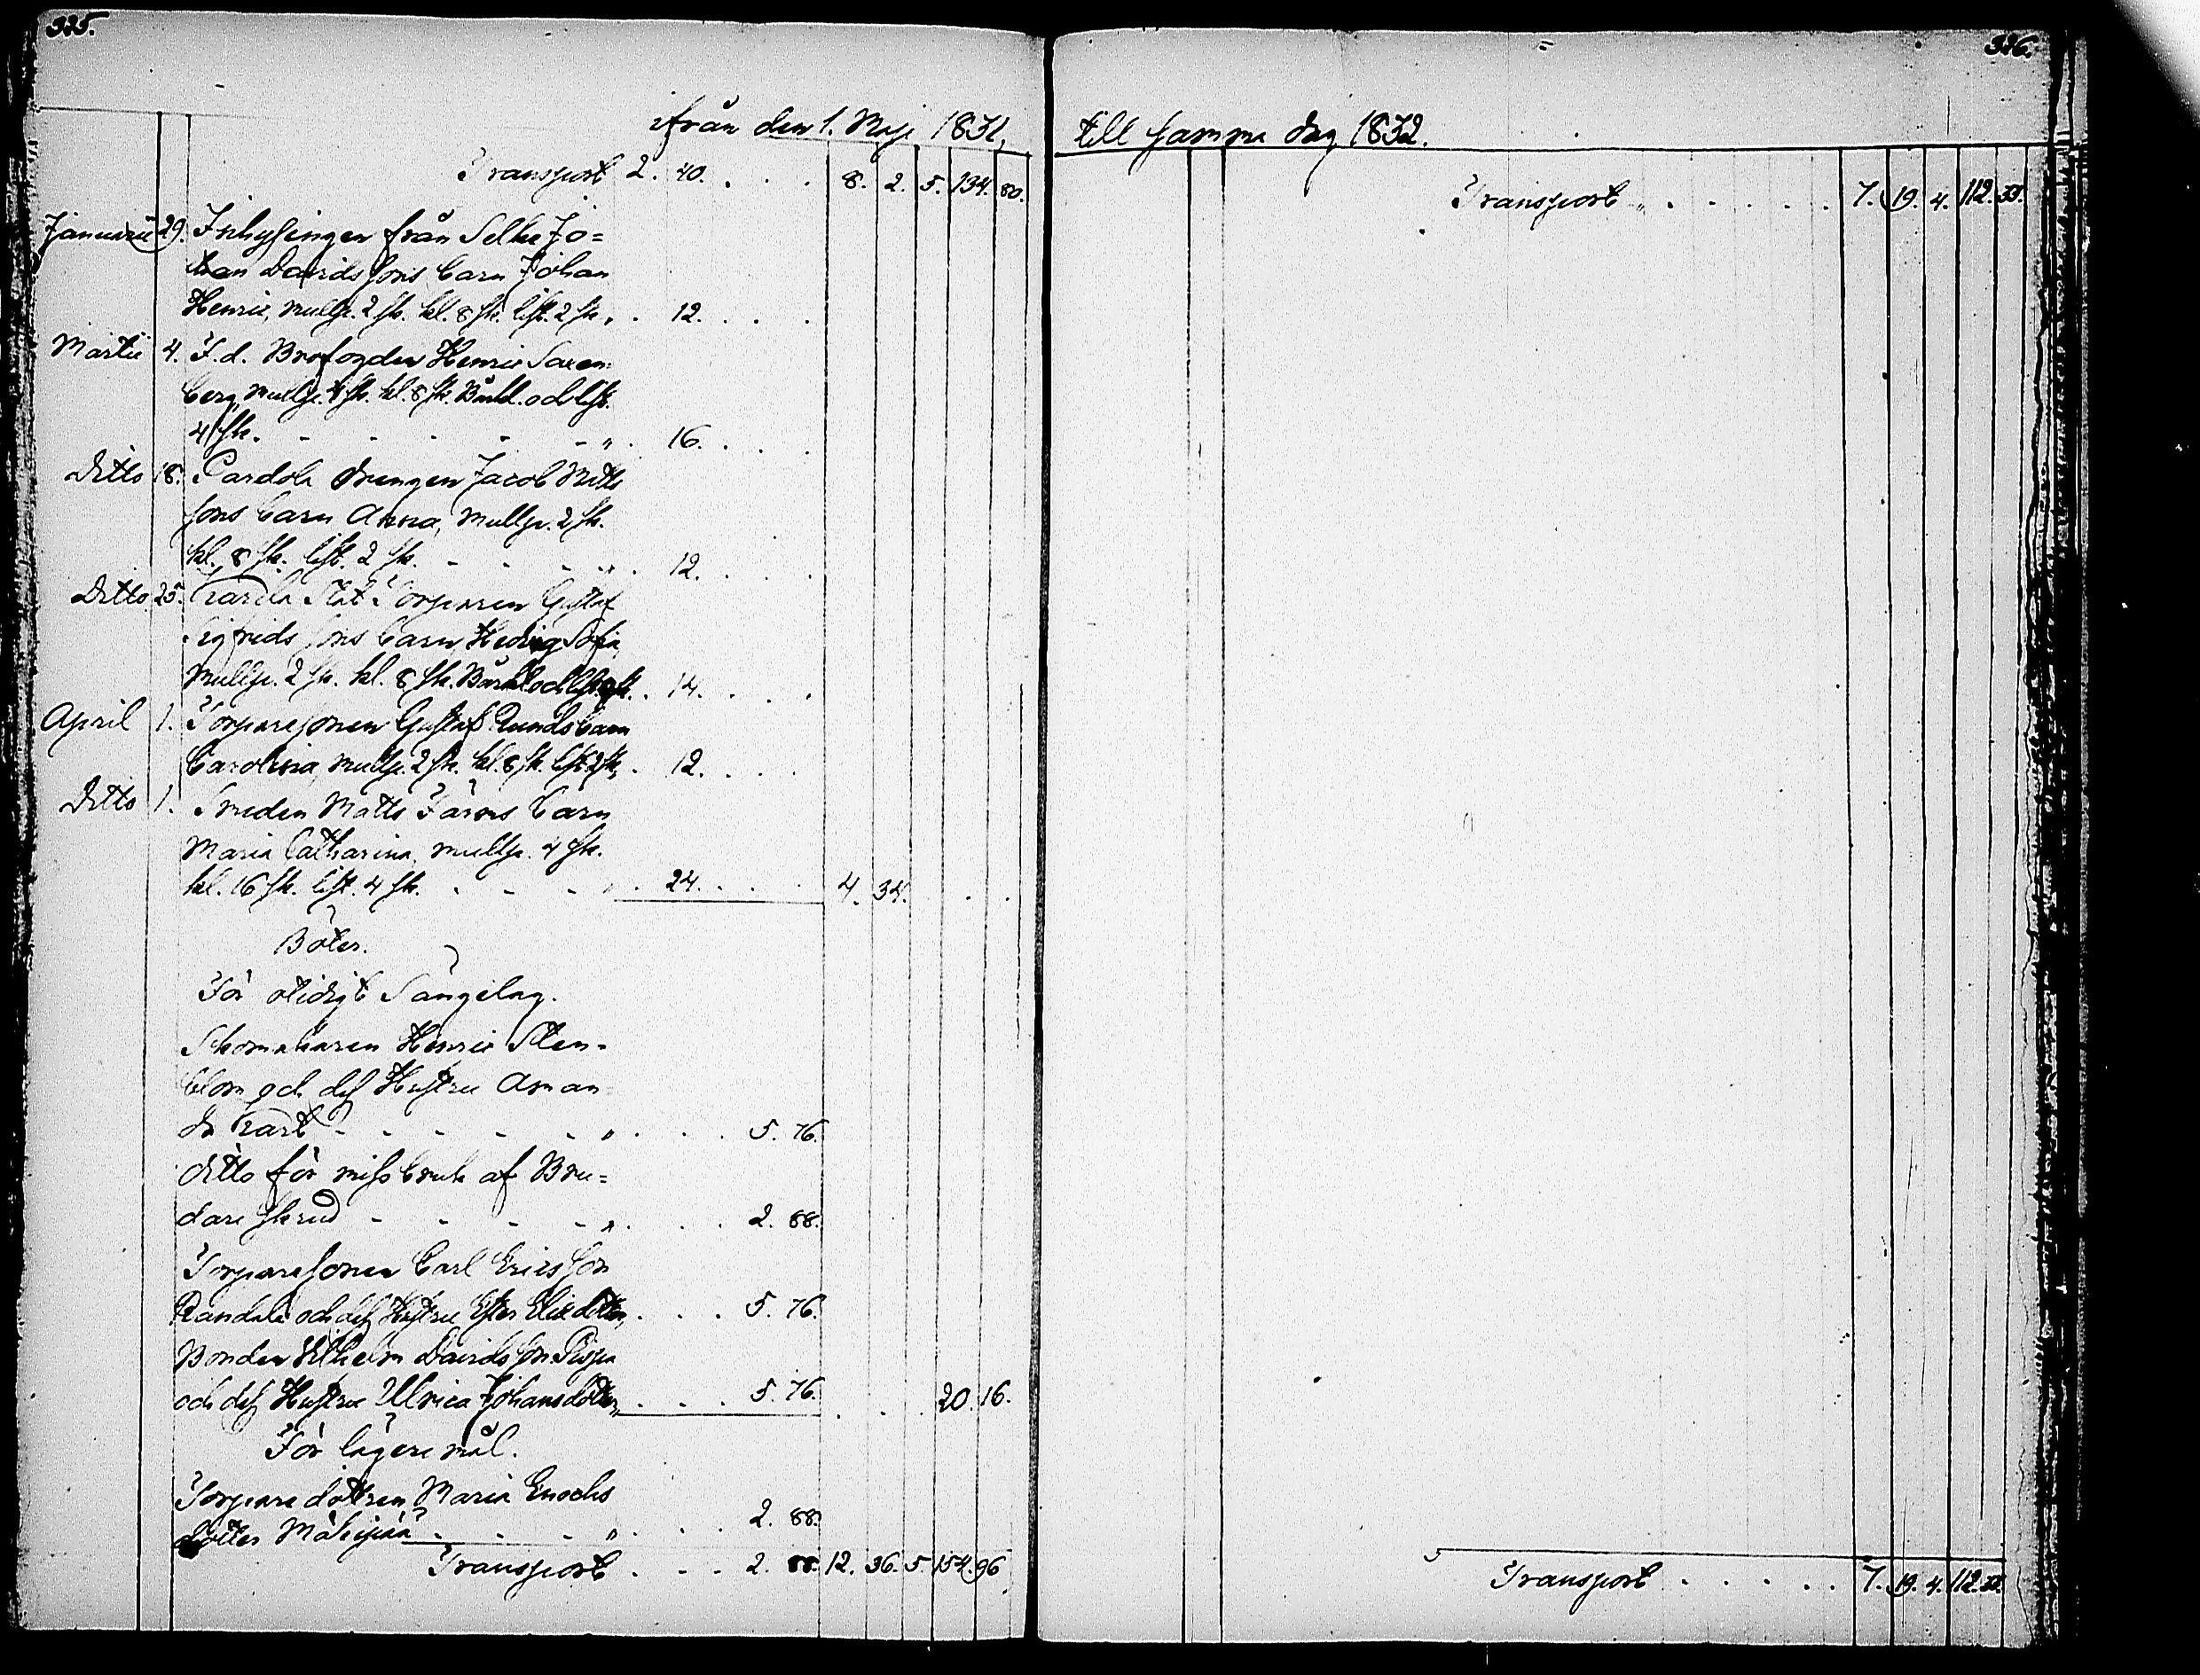 325.
ifrån den 1. Maji 1831,
Transport 2. 40. . . . 8. 2. 5. 134. 80.
Januarii 29. Inhysingen från Selki Jo=
han Davidssons barn Johan
Henric, mullp. 2 sk. kl. 8 sk. likst. 2 sk. „ . 12. . . .
Martii 4. F.d. Brofogden Henric Saxen=
berg, mullp. 4 sk. kl. 8 sk. Bårkl. och likst.
4 sk. - - - - - „ . 16. . . .
Ditto 18. Pardola drengen Jacob Matts
sons barn Anna, mullp. 2 sk.
kl. 8 sk. likst. 2 sk. - - - „ . 12. . . .
Ditto 25. Torparen Gustaf
Sigfrids sons barn Hedvig Sofia,
mullp. 2 sk. kl. 8 sk. Bårkl. och likst. 4 sk. . 14. . . .
April 1. Torparesonen Gustaf Lunds barn
Carolina, mullp. 2 sk. kl. 8 sk. likst. 2 sk. „ . 12. . . .
Ditto 1. Smeden Matts Färms barn
Maria Catharina, mullp. 4 sk.
kl. 16 sk. likst. 4 sk. - - - „ . 24. . . . 4. 34. . . .
Böter.
För otidigt Sängelag.
Skomakaren Henric Sten=
blom och dess Hustru Aman=
da - - - - - „ . . . 5. 76.
ditto för missbruk af Bru=
dareskrud - - - - „ . . . 2. 88.
Torparesonen Carl Ericsson
Randala och dess Hustru Ester Eliædotter, . . . 5. 76.
Bonden Wilhelm Davidsson Pispa
och dess Hustru Ulrica Johansdotter „ . . . 5. 76. . . . 20. 16.
För lägersmål.
Torparedottren Maria Enochs
dotter - - - „ . . . 2. 88.
Transport . . . 2. 88. 12. 36. 5. 154. 96
326.
till samma dag 1832.
Transport „ . . . . . 7. 19. 4. 112. 33.
Transport . . . . . 7. 19. 4. 112. 33.